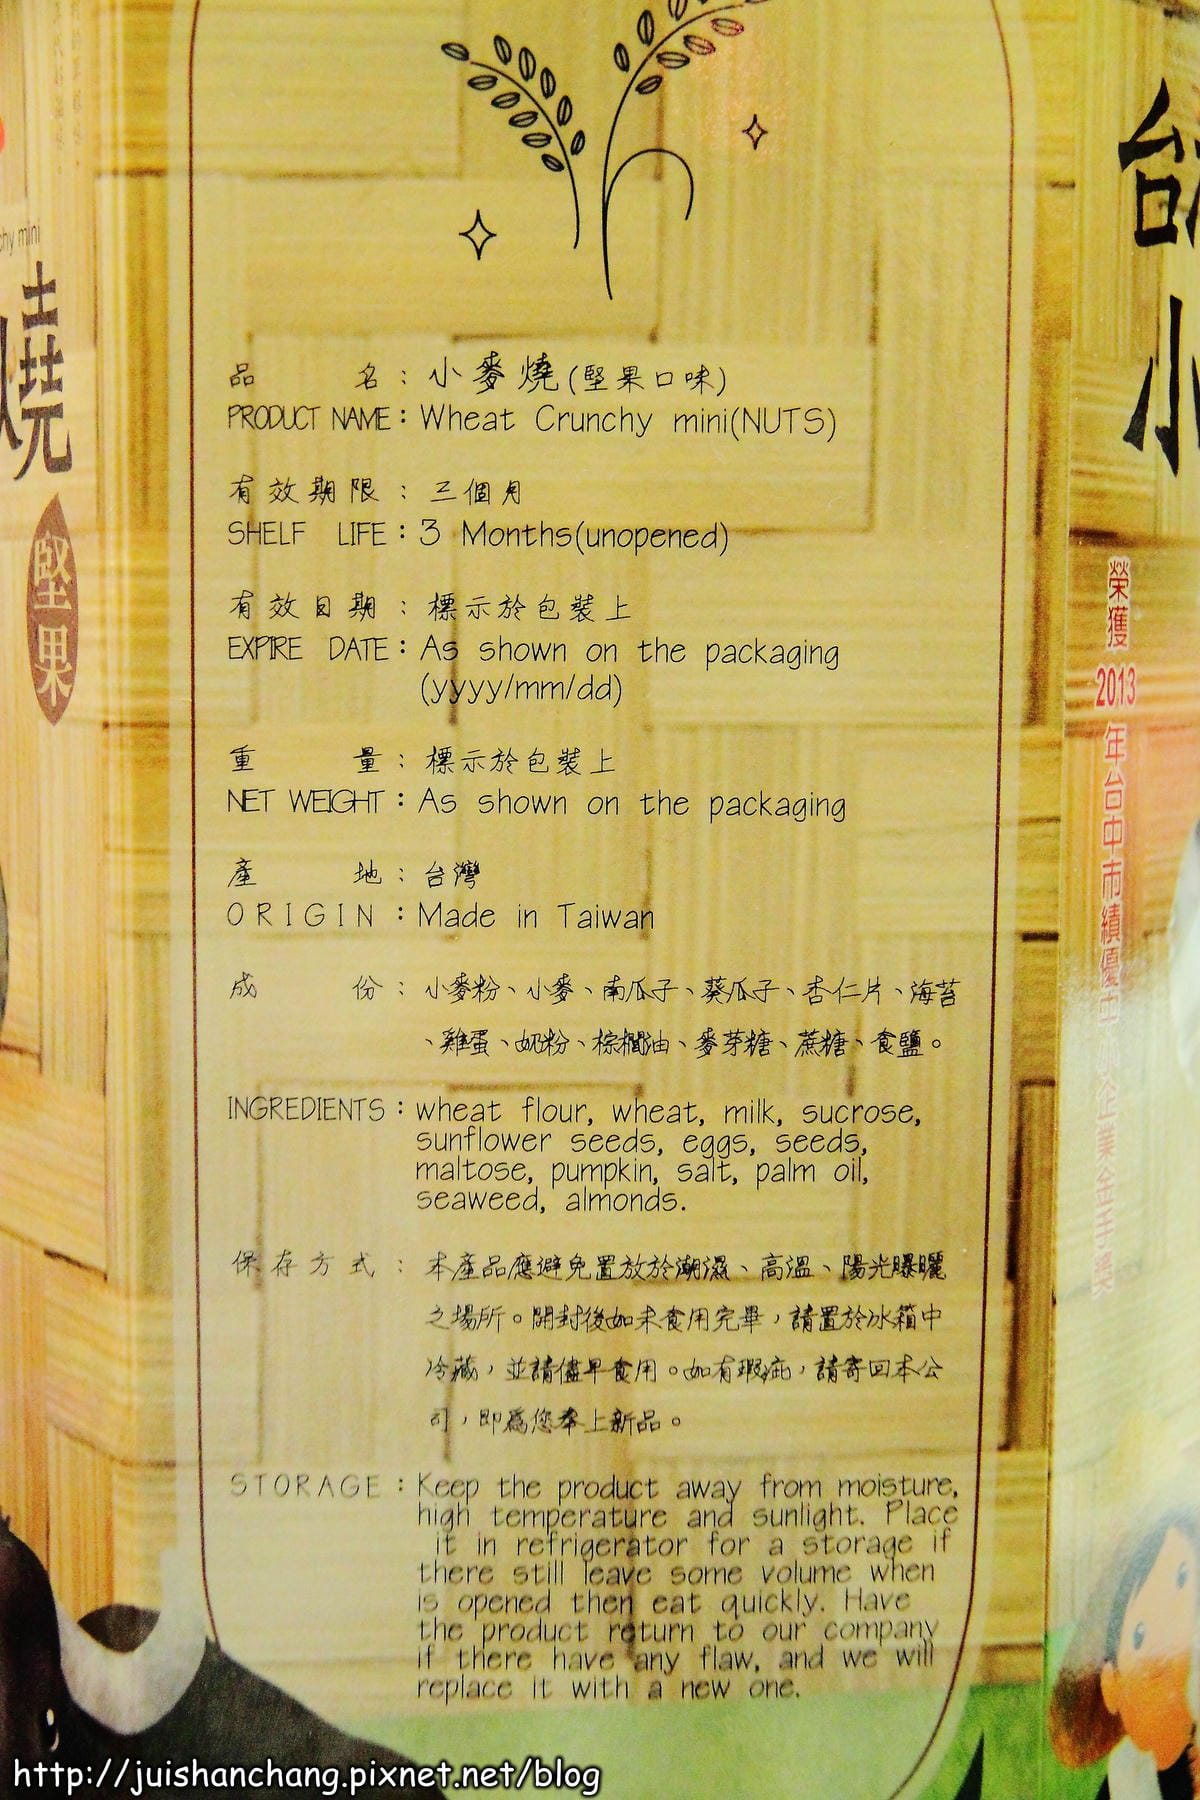 chy mini
燒
堅果
品名：小麥燒(堅果口味)
PRODUCT NAME：Wheat Crunchy mini(NUTS)
有效期限：三個月
SHELF LIFE：3 Months(unopened)
有效日期：標示於包裝上
EXPIRE DATE：As shown on the packaging
(yyyy/mm/dd)
重量：標示於包裝上
NET WEIGHT：As shown on the packaging
產地：台灣
ORIGIN：Made in Taiwan
成份：小麥粉、小麥、南瓜子、葵瓜子、杏仁片、海苔
、雞蛋、奶粉、棕櫚油、麥芽糖、蔗糖、食鹽。
INGREDIENTS：wheat flour, wheat, milk, sucrose,
sunflower seeds, eggs, seeds,
maltose, pumpkin, salt, palm oil,
seaweed, almonds.
保存方式：本產品應避免置放於潮濕、高溫、陽光曝曬
之場所。開封後如未食用完畢，請置於冰箱中
冷藏，並請儘早食用。如有瑕疵，請寄回本公
司，即為您奉上新品。
STORAGE：Keep the product away from moisture,
high temperature and sunlight. Place
it in refrigerator for a storage if
there still leave some volume when
is opened then eat quickly. Have
the product return to our company
if there have any flaw, and we will
replace it with a new one.
小
榮獲2013年台中市績優中小企業金手獎
http://juishanchang.pixnet.net/blog